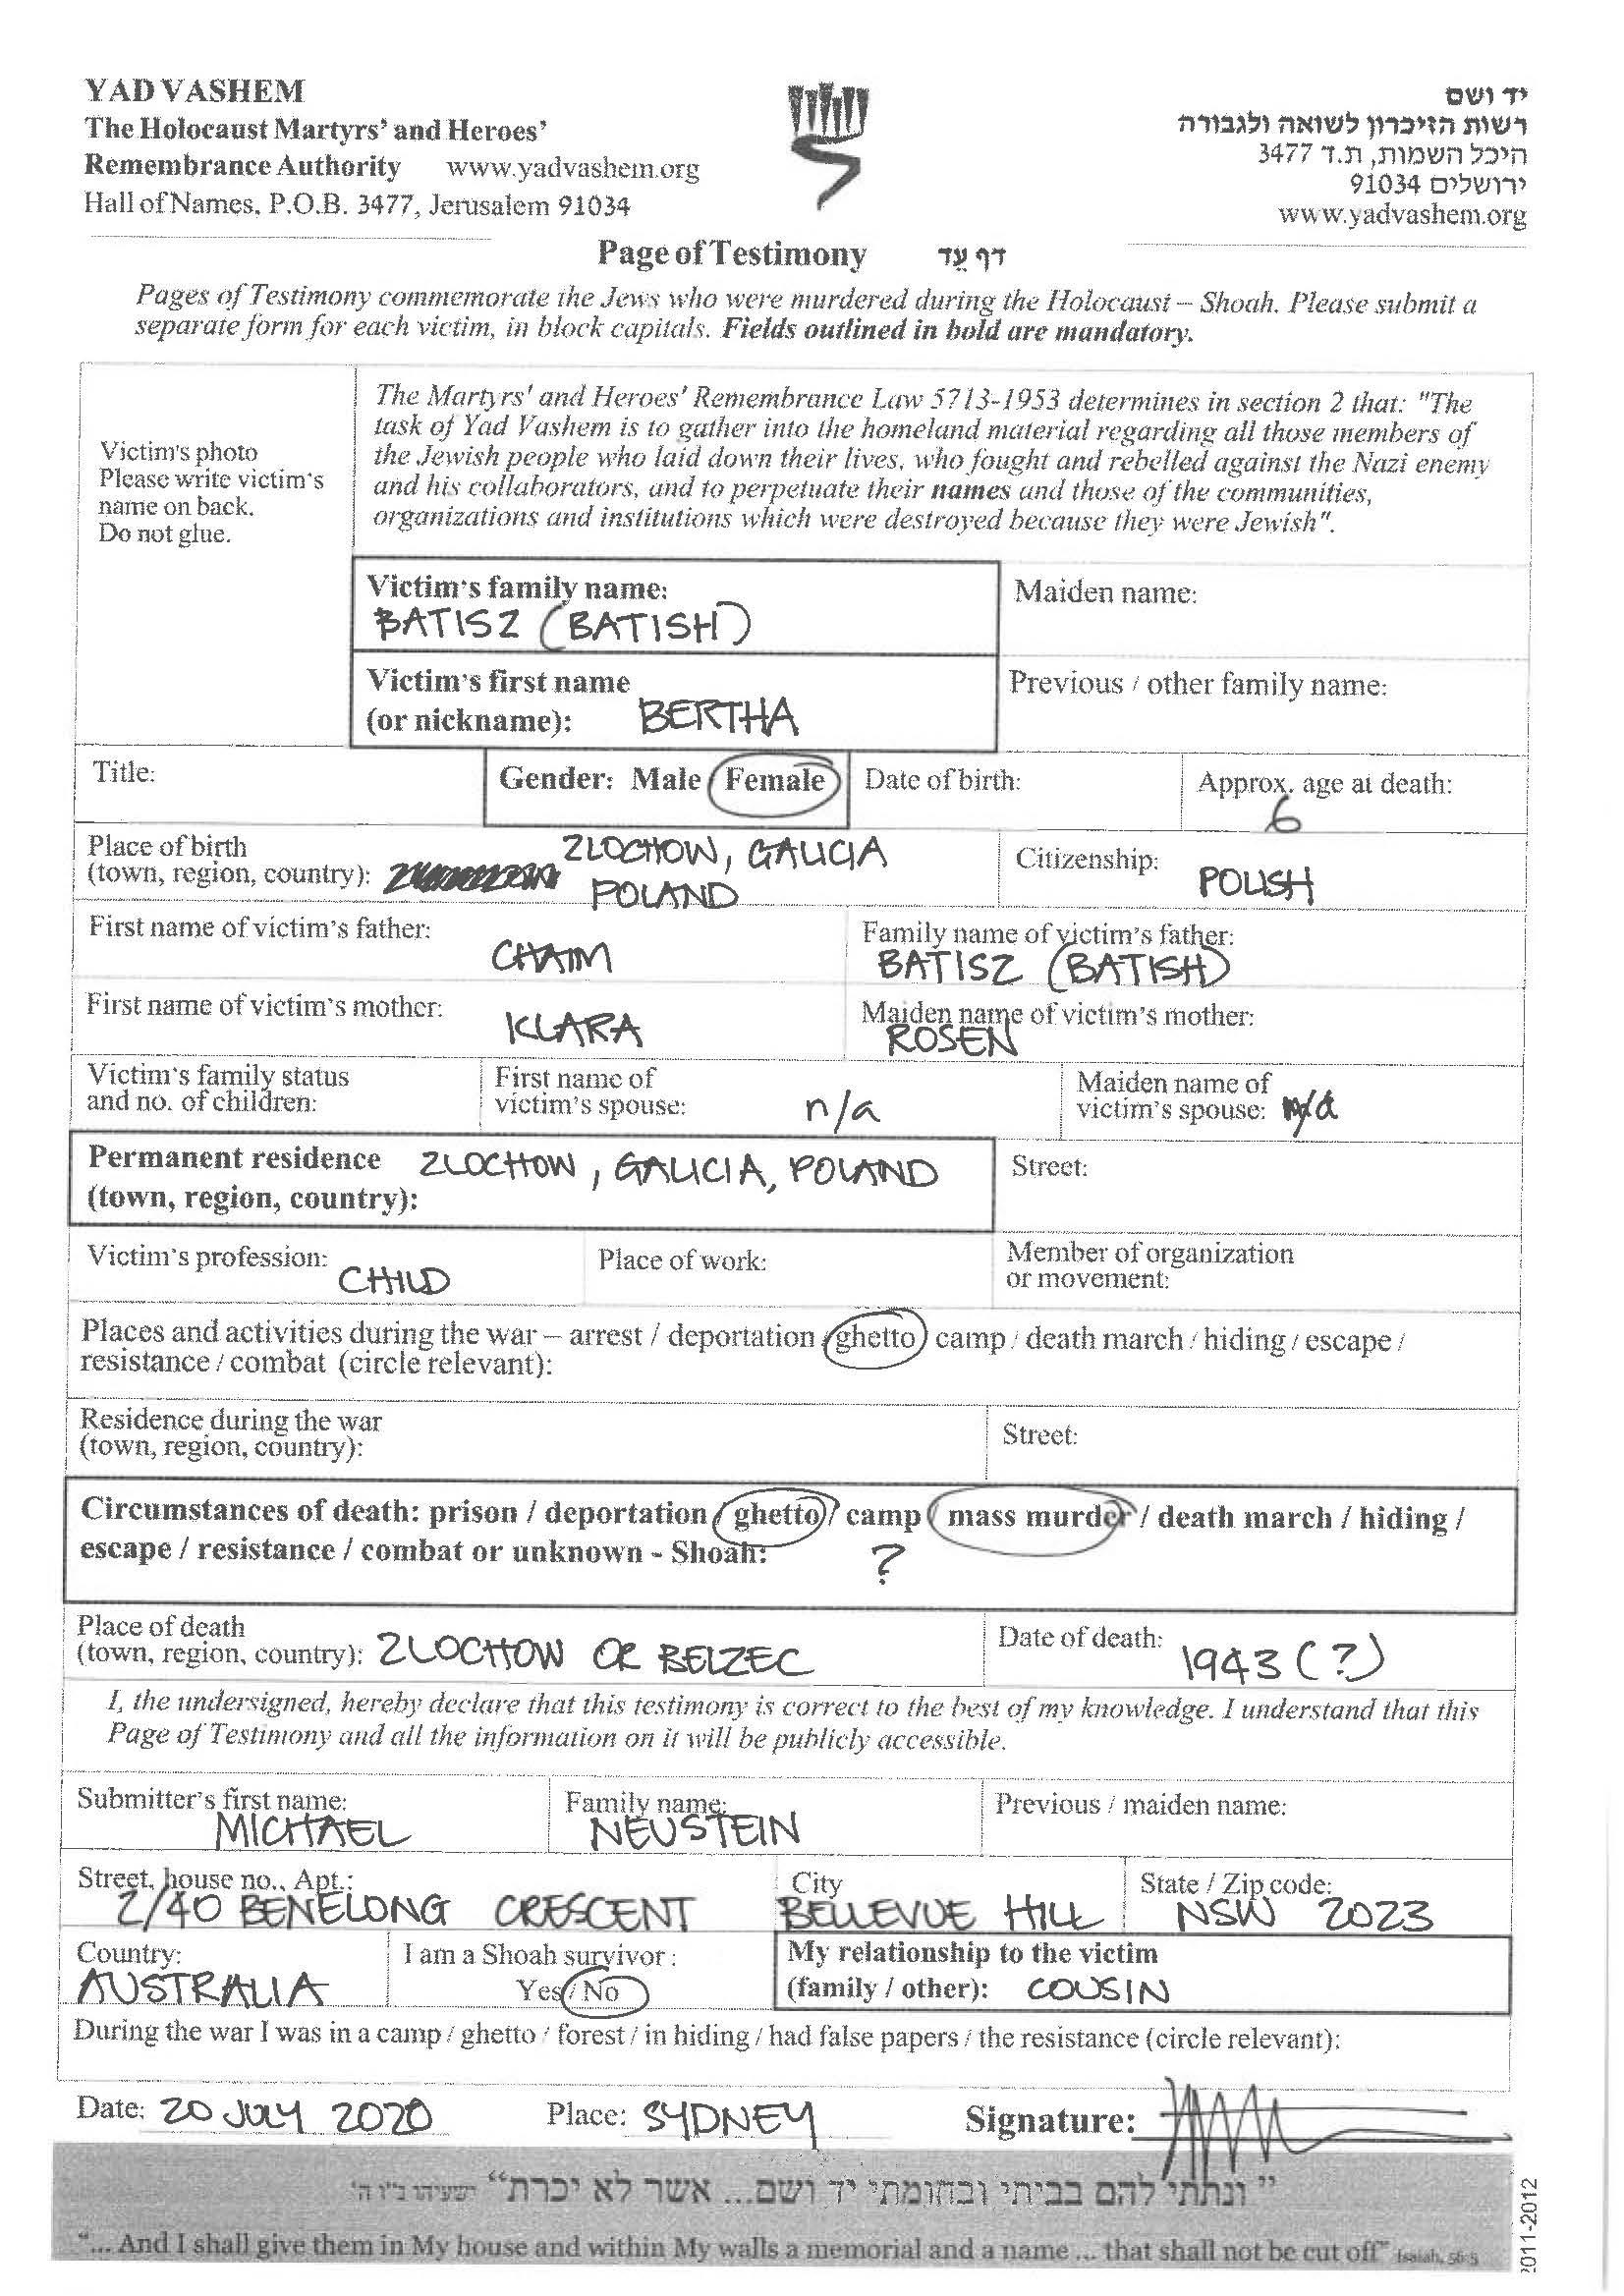 YAD VASHEM
The Holocaust Martyrs' and Heroes'
Remembrance Authority www.yadvashem.org
Hall of Names, P.O.B. 3477, Jerusalem 91034
יד ושם
רשות הזיכרון לשואה ולגבורה
היכל השמות, ת.ד 3477
ירושלים 91034
www.yadvashem.org
Page of Testimony דף עֵד
Pages of Testimony commemorate the Jews who were murdered during the Holocaust – Shoah. Please submit a
separate form for each victim, in block capitals. Fields outlined in bold are mandatory.
Victim's photo
Please write victim's
name on back.
Do not glue.
The Martyrs' and Heroes' Remembrance Law 5713-1953 determines in section 2 that: "The
task of Yad Vashem is to gather into the homeland material regarding all those members of
the Jewish people who laid down their lives, who fought and rebelled against the Nazi enemy
and his collaborators, and to perpetuate their names and those of the communities,
organizations and institutions which were destroyed because they were Jewish".
Victim's family name:
BATISZ (BATISH)
Maiden name:
Victim's first name
(or nickname): BERTHA
Previous / other family name:
Title:
Gender: Male / Female
Date of birth:
Approx. age at death:
6
Place of birth
(town, region, country):
ZLOCHOW, GALICIA
POLAND
Citizenship:
POLISH
First name of victim's father:
CHAIM
Family name of victim's father:
BATISZ (BATISH)
First name of victim's mother:
KLARA
Maiden name of victim's mother:
ROSEN
Victim's family status
and no. of children:
First name of
victim's spouse: n/a
Maiden name of
victim's spouse: n/a
Permanent residence ZLOCHOW, GALICIA, POLAND
(town, region, country):
Street:
Victim's profession:
CHILD
Place of work:
Member of organization
or movement:
Places and activities during the war – arrest / deportation / ghetto / camp / death march / hiding / escape /
resistance / combat (circle relevant):
Residence during the war
(town, region, country):
Street:
Circumstances of death: prison / deportation / ghetto / camp / mass murder / death march / hiding /
escape / resistance / combat or unknown - Shoah: ?
Place of death
(town, region, country): ZLOCHOW OR BELZEC
Date of death:
1943 (?)
I, the undersigned, hereby declare that this testimony is correct to the best of my knowledge. I understand that this
Page of Testimony and all the information on it will be publicly accessible.
Submitter's first name:
MICHAEL
Family name:
NEUSTEIN
Previous / maiden name:
Street, house no., Apt.:
2/40 BENELONG CRESCENT
City
BELLEVUE HILL
State / Zip code:
NSW 2023
Country:
AUSTRALIA
I am a Shoah survivor :
Yes / No
My relationship to the victim
(family / other): COUSIN
During the war I was in a camp / ghetto / forest / in hiding / had false papers / the resistance (circle relevant):
Date: 20 JULY 2020 Place: SYDNEY Signature:
" ונתתי להם בביתי ובחומתי יד ושם... אשר לא יכרת" ישעיהו נ"ו ה'
"... And I shall give them in My house and within My walls a memorial and a name ... that shall not be cut off" Isaiah, 56:5
2011-2012